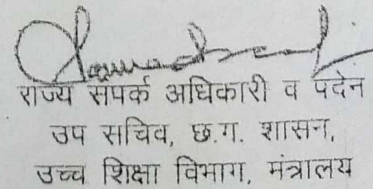 राज्य संपर्क अधिकारी व पदेन
उप सचिव, छ.ग. शासन,
उच्च शिक्षा विभाग, मंत्रालय